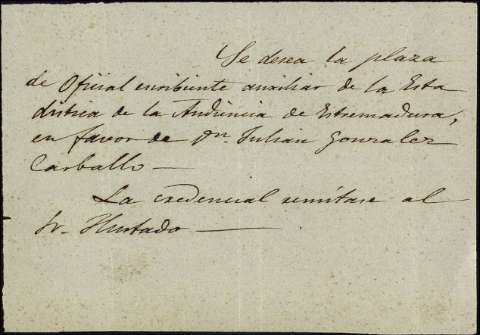 Se desea la plaza
de Oficial escribiente auxiliar de la Esta
distica de la Audiencia de Estremadura,
en favor de Dn. Julian Gonzalez
Carballo —
La credencial remítase al
Sr. Hurtado —